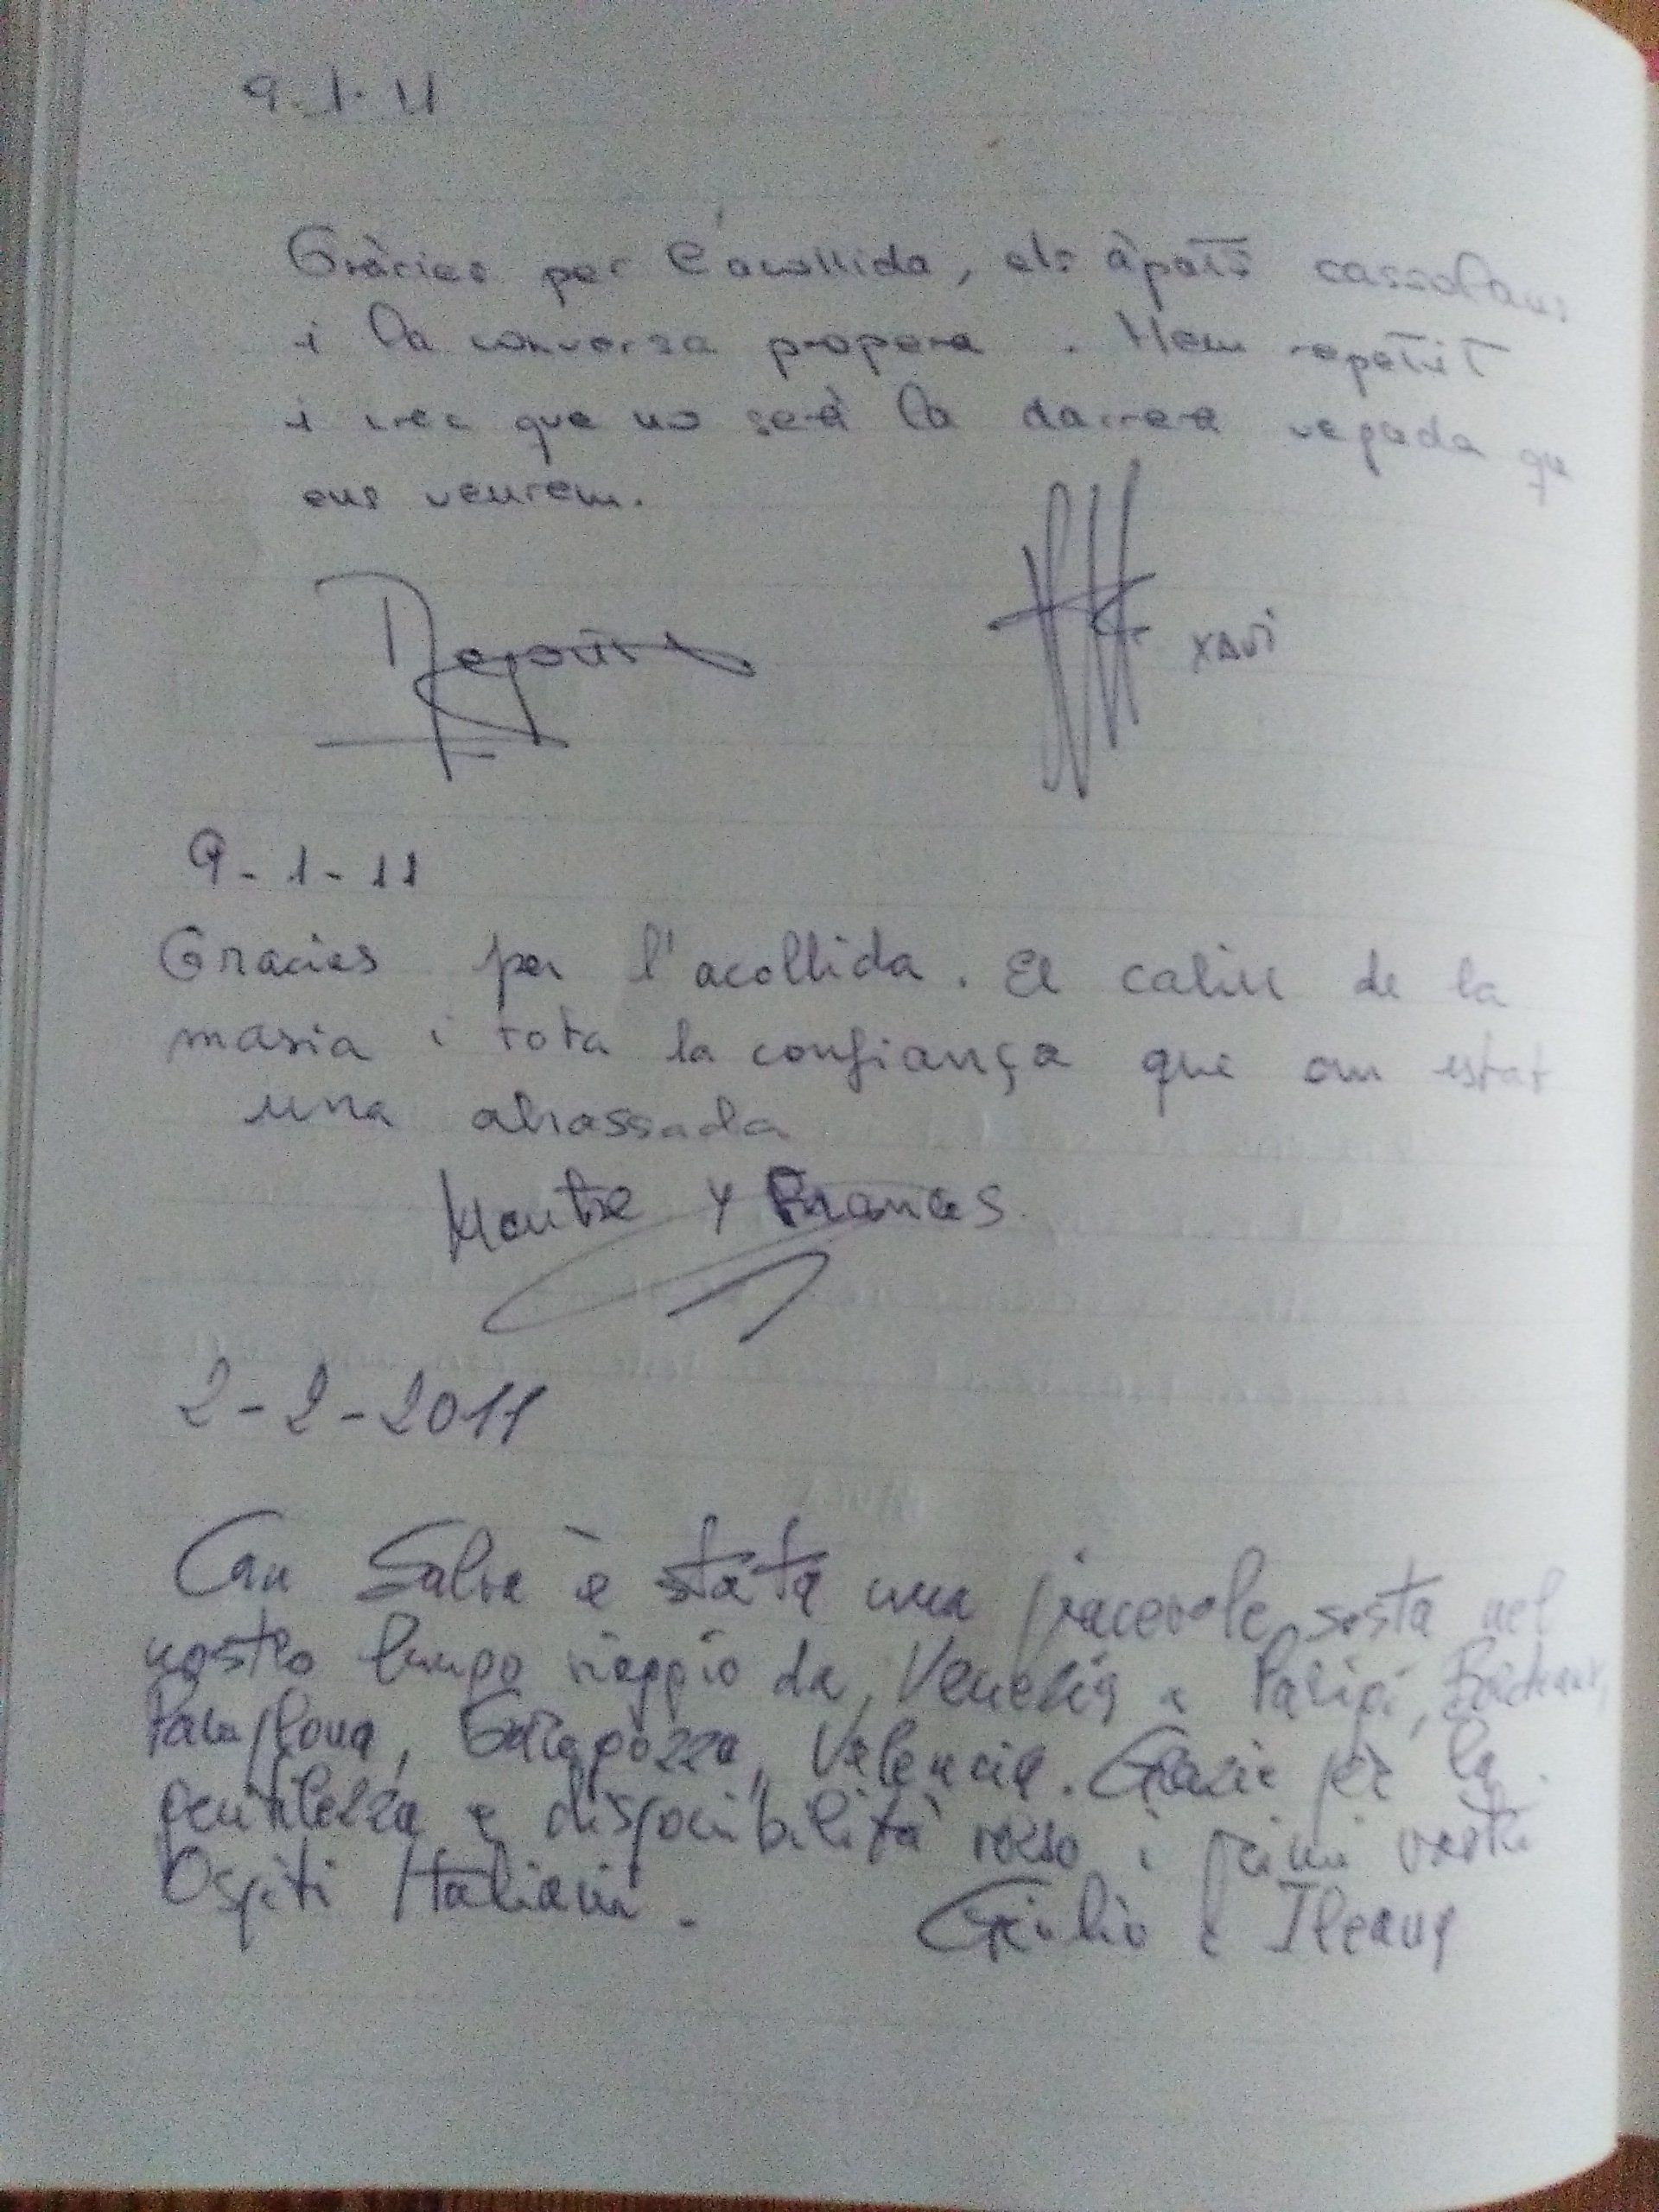 9-1-11
Gràcies per l'acollida, els àpats cassolans
i la conversa propera. Hem repetit
i crec que no serà la darrera vegada que
ens veurem.
XAVi
9-1-11
Gracies per l'acollida. El caliu de la
masia i tota la confiança que om estat
una abrassada
Montse y Frances.
2-2-2011
Can Salva è stata una piacevole sosta nel
nostro lungo viaggio da Venezia a Parigi, Bordeaux,
Pamplona, Saragozza, Valencia. Grazie per la
gentilezza e disponibilità verso i primi vostri
Ospiti Italiani.
Giulio e Ileana